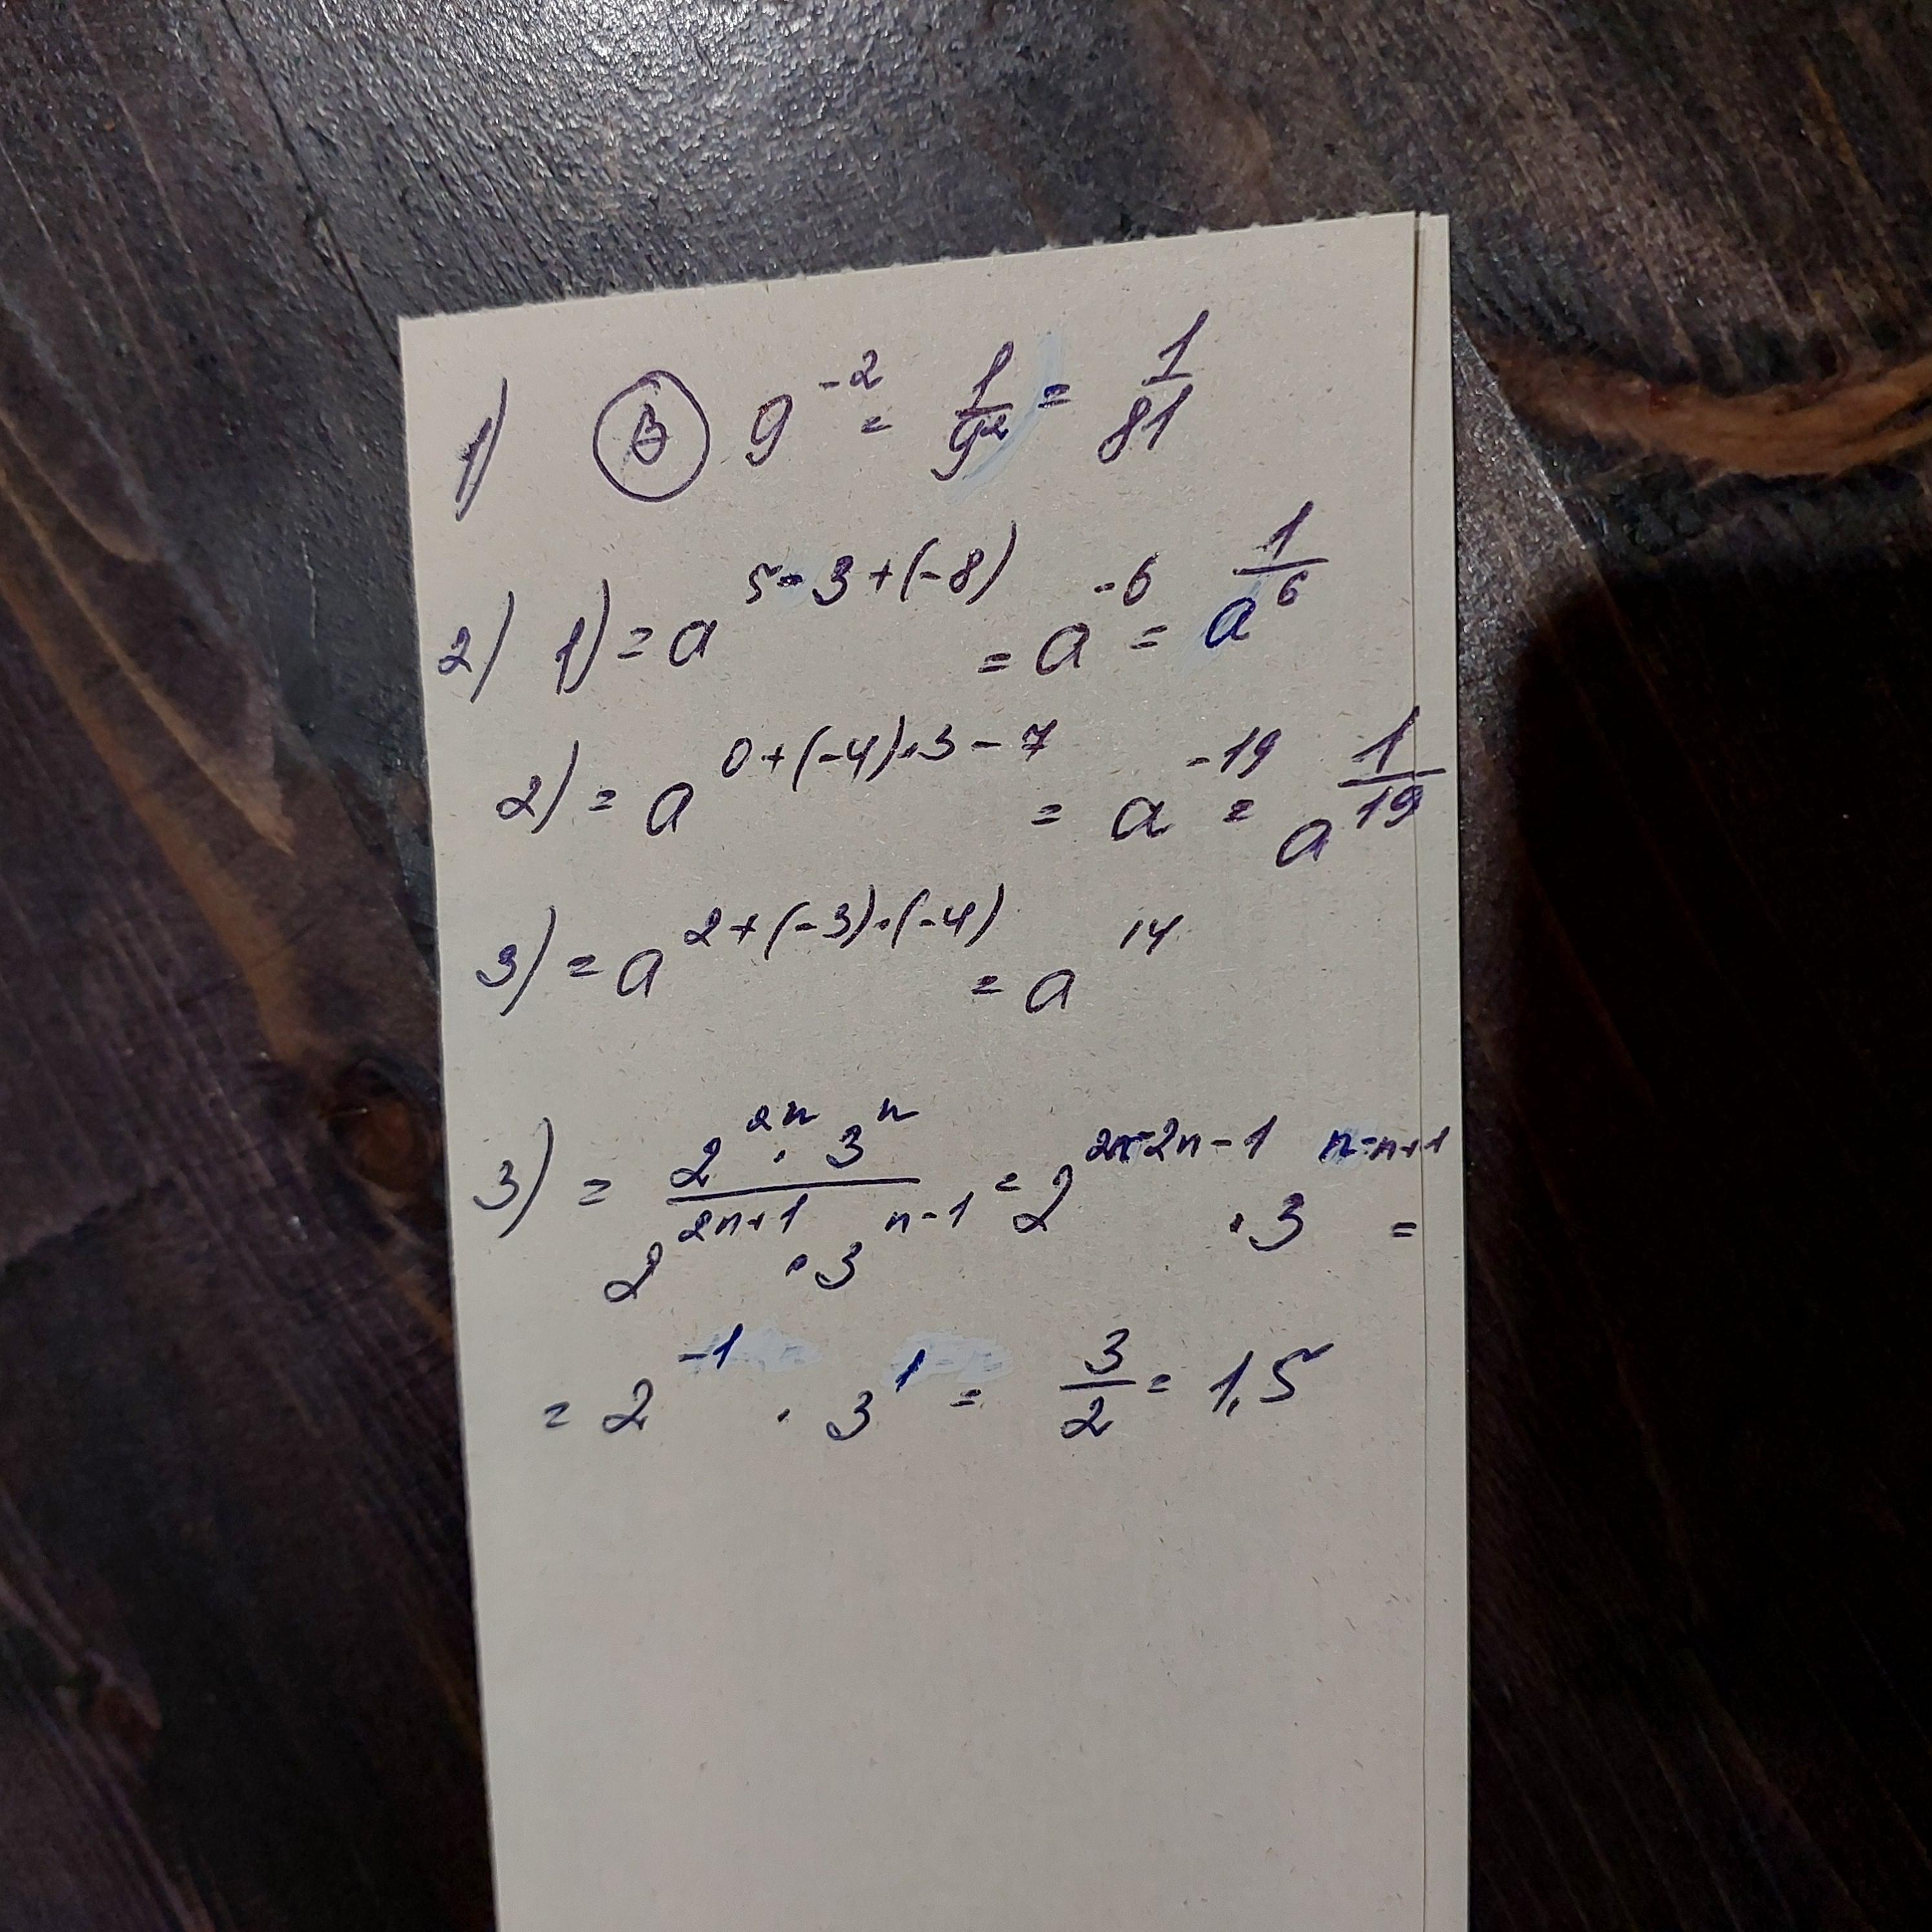 1) В 9^{-2} = \frac{1}{9^2} = \frac{1}{81}
2) 1) = a^{5-3+(-8)} = a^{-6} = a^{\frac{1}{6}}
2) = a^{0+(-4)·3-7} = a^{-19} = a^{\frac{1}{19}}
3) = a^{2+(-3)·(-4)} = a^{14}
3) = \frac{2^{2n} · 3^{n}}{2^{2n+1} · 3^{n-1}} = 2^{2n-2n-1} · 3^{n-n+1} =
= 2^{-1} · 3^{1} = \frac{3}{2} = 1,5